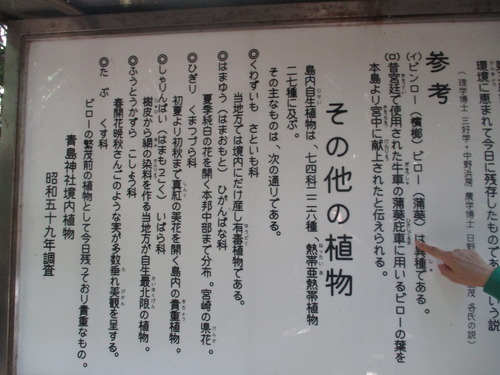 環境に恵まれて今日に残存したものであるという説
(理学博士 三好学・中野浜房 農学博士 日野 茂 各氏の説)
参考
(イ)ビンロー(檳榔)ビロー(蒲葵)は異種である。
(ロ)昔宮廷で使用された牛車の蒲葵庇車に用いるビローの葉を
本島より宮中に献上されたと伝えられる。
その他の植物
島内自生植物は、七四科二二六種 熱帯亜熱帯植物
二七種に及ぶ。
その主なものは、次の通りである。
◎くわずいも さといも科
当地方では境内にだけ産し有毒植物である。
◎はまゆう(はまおもと) ひがんばな科
夏季純白の花を開く本邦中部まで分布。宮崎の県花。
◎ひぎり くまつづら科
初夏より初秋まで真紅の美花を開く島内の貴重植物。
◎しゃりんばい(はまもっこく) いばら科
樹皮から絹の染料を作る当地方が自生最北限の植物。
◎ふうとうかずら こしょう科
春開花晩秋さんごのような実が多数垂れ美観を呈する。
◎たぶ くす科
ビローの繁茂前の植物として今日残っており貴重なもの。
青島神社境内植物
昭和五十九年調査